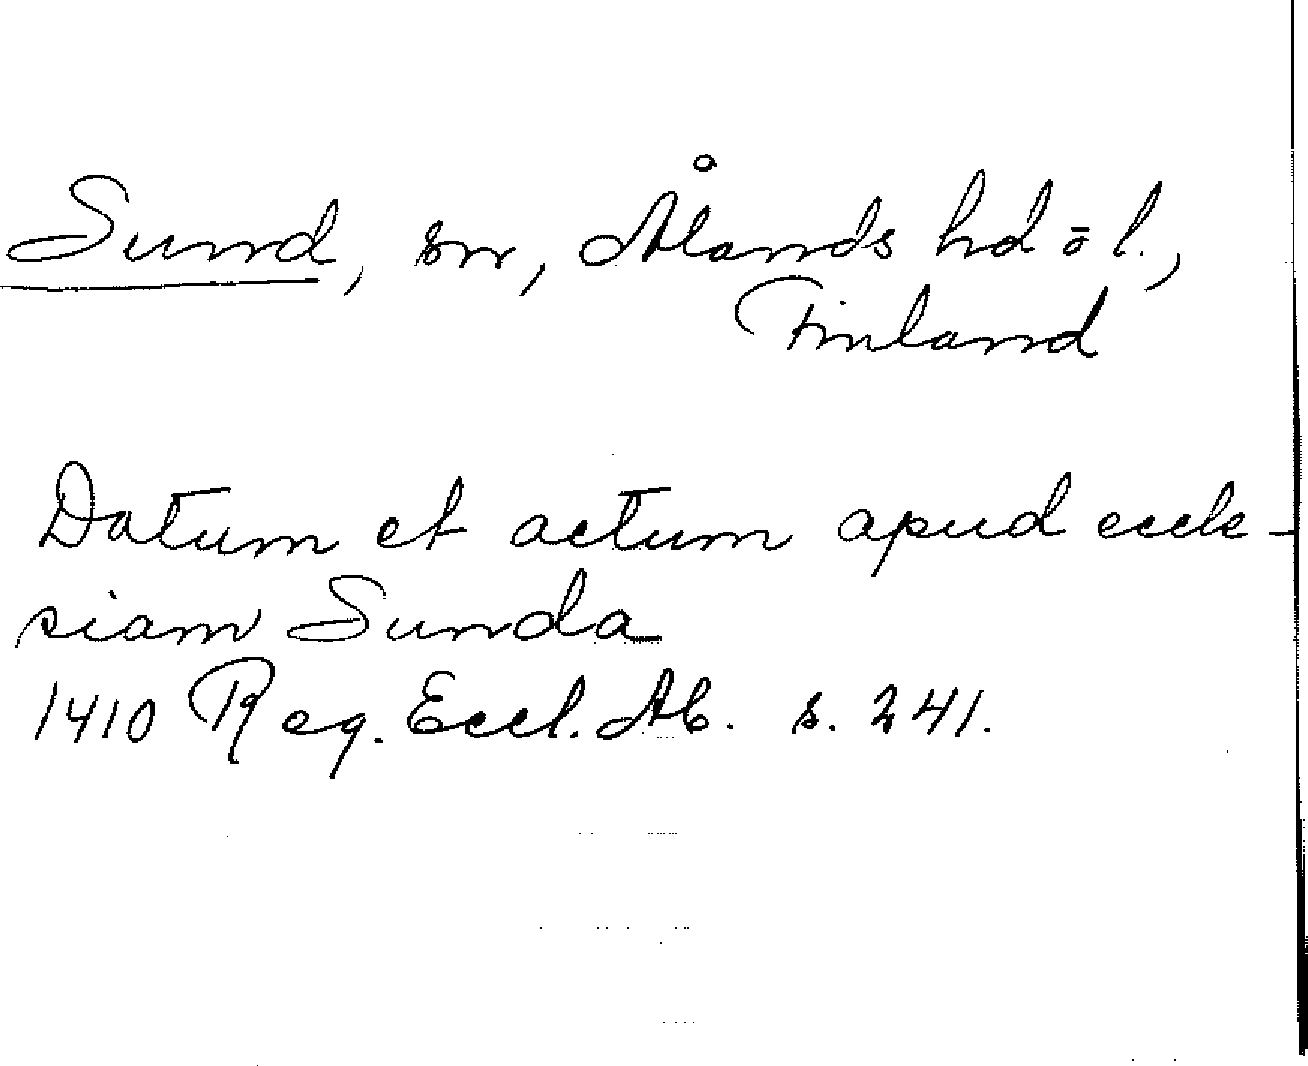 Sund, sn, Ålands hd o l.,
Finland
Datum et actum apud eccle-
siam Sunda
1410 Reg. Eccl. Ab. s. 241.